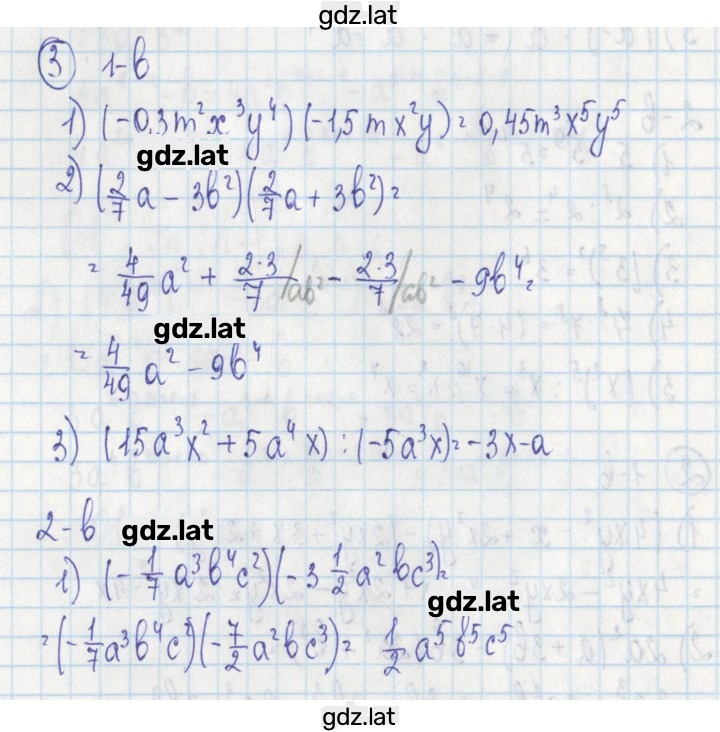 gdz.lat
③ 1-в
1) (-0,3m²x³y⁴)(-1,5mx²y) = 0,45m³x⁵y⁵
gdz.lat
2) (2/7 a - 3b²)(2/7 a + 3b²) =
= 4/49 a² + 2·3/7 ab² - 2·3/7 ab² - 9b⁴ =
gdz.lat
= 4/49 a² - 9b⁴
3) (15a³x² + 5a⁴x) : (-5a³x) = -3x-a
2-в gdz.lat
1) (-1/7 a³b⁴c²)(-3 1/2 a²bc³) =
gdz.lat
= (-1/7 a³b⁴c²)(-7/2 a²bc³) = 1/2 a⁵b⁵c⁵
gdz.lat